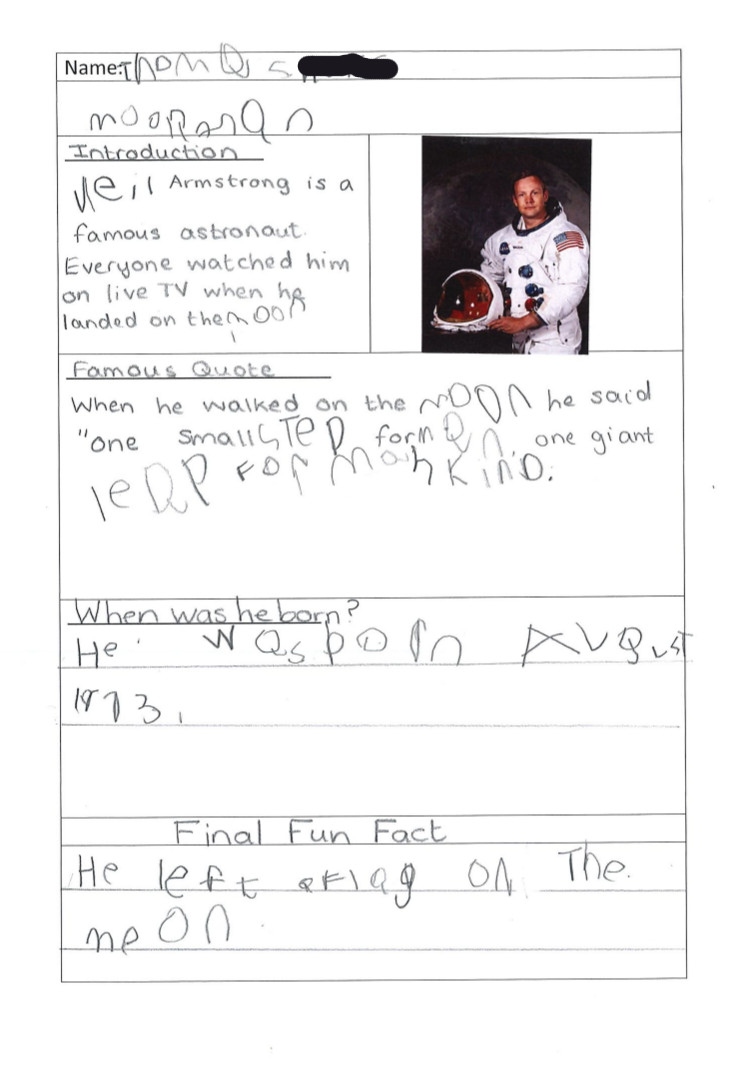 Name: Thomas
moon man
Introduction
Neil Armstrong is a
famous astronaut.
Everyone watched him
on live TV when he
landed on the moon
Famous Quote
When he walked on the moon he said
"one small step for man, one giant
leap for mankind.
When was he born?
He was born August
Final Fun Fact
He left a flag on The.
moon.